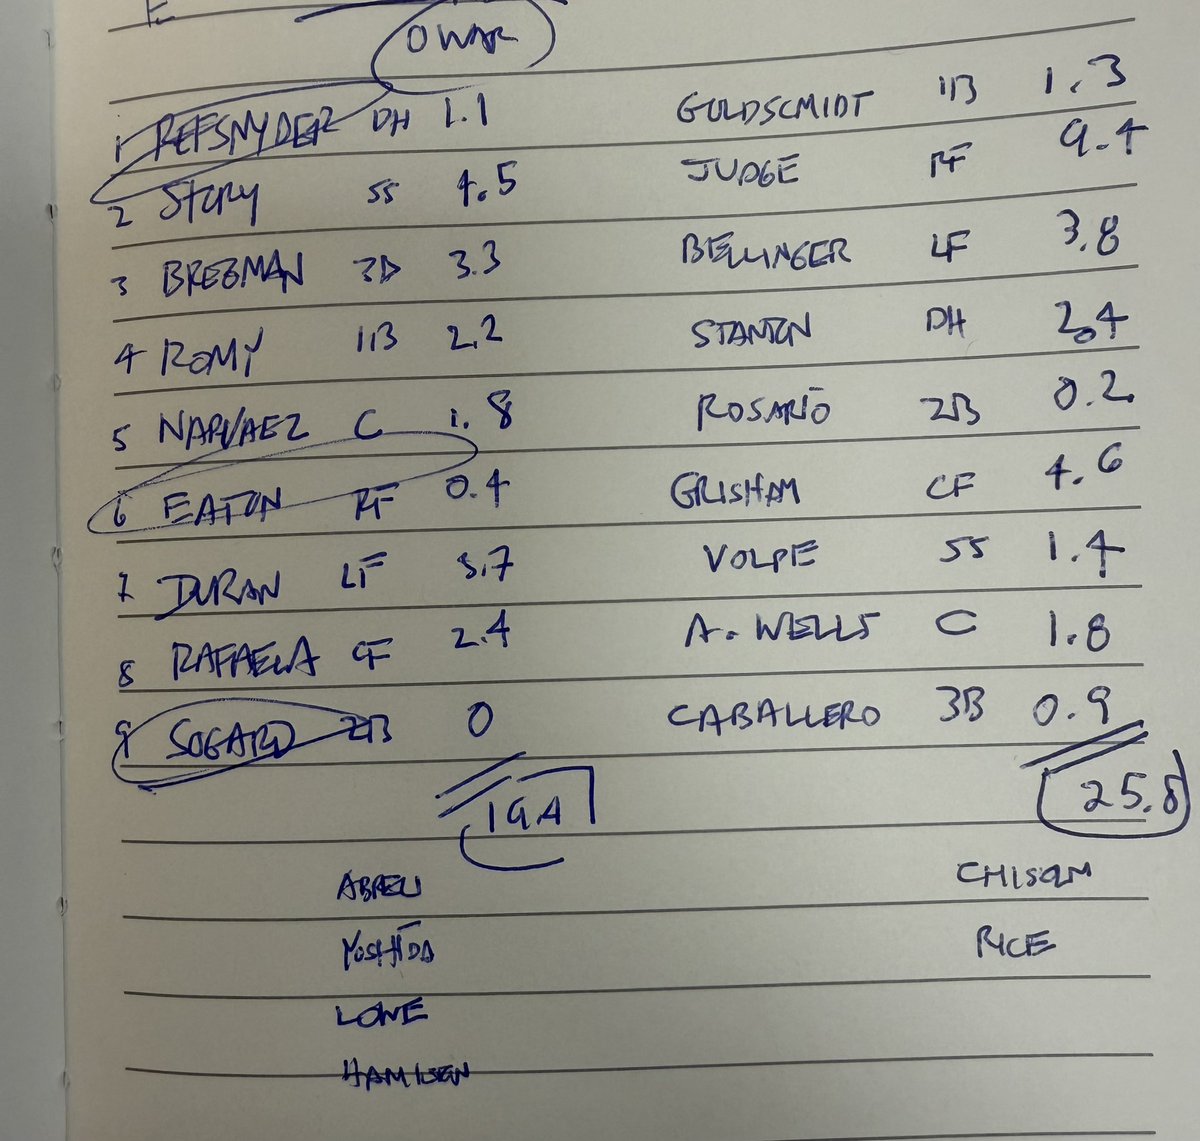 OWAR
1 REFSNYDER DH 1.1 GOLDSCMIDT 1B 1.3
2 STORY SS 4.5 JUDGE RF 9.4
3 BREGMAN 3B 3.3 BELLINGER LF 3.8
4 ROMY 1B 2.2 STANTON DH 2.4
5 NARVAEZ C 1.8 ROSARIO 2B 0.2
6 EATON RF 0.4 GRISHAM CF 4.6
7 DURAN LF 3.7 VOLPE SS 1.4
8 RAFAELA CF 2.4 A. WELLS C 1.8
9 SOGARD 2B 0 CABALLERO 3B 0.9
19.4 25.8
ABREU CHISOLM
YOSHIDA RICE
LOWE